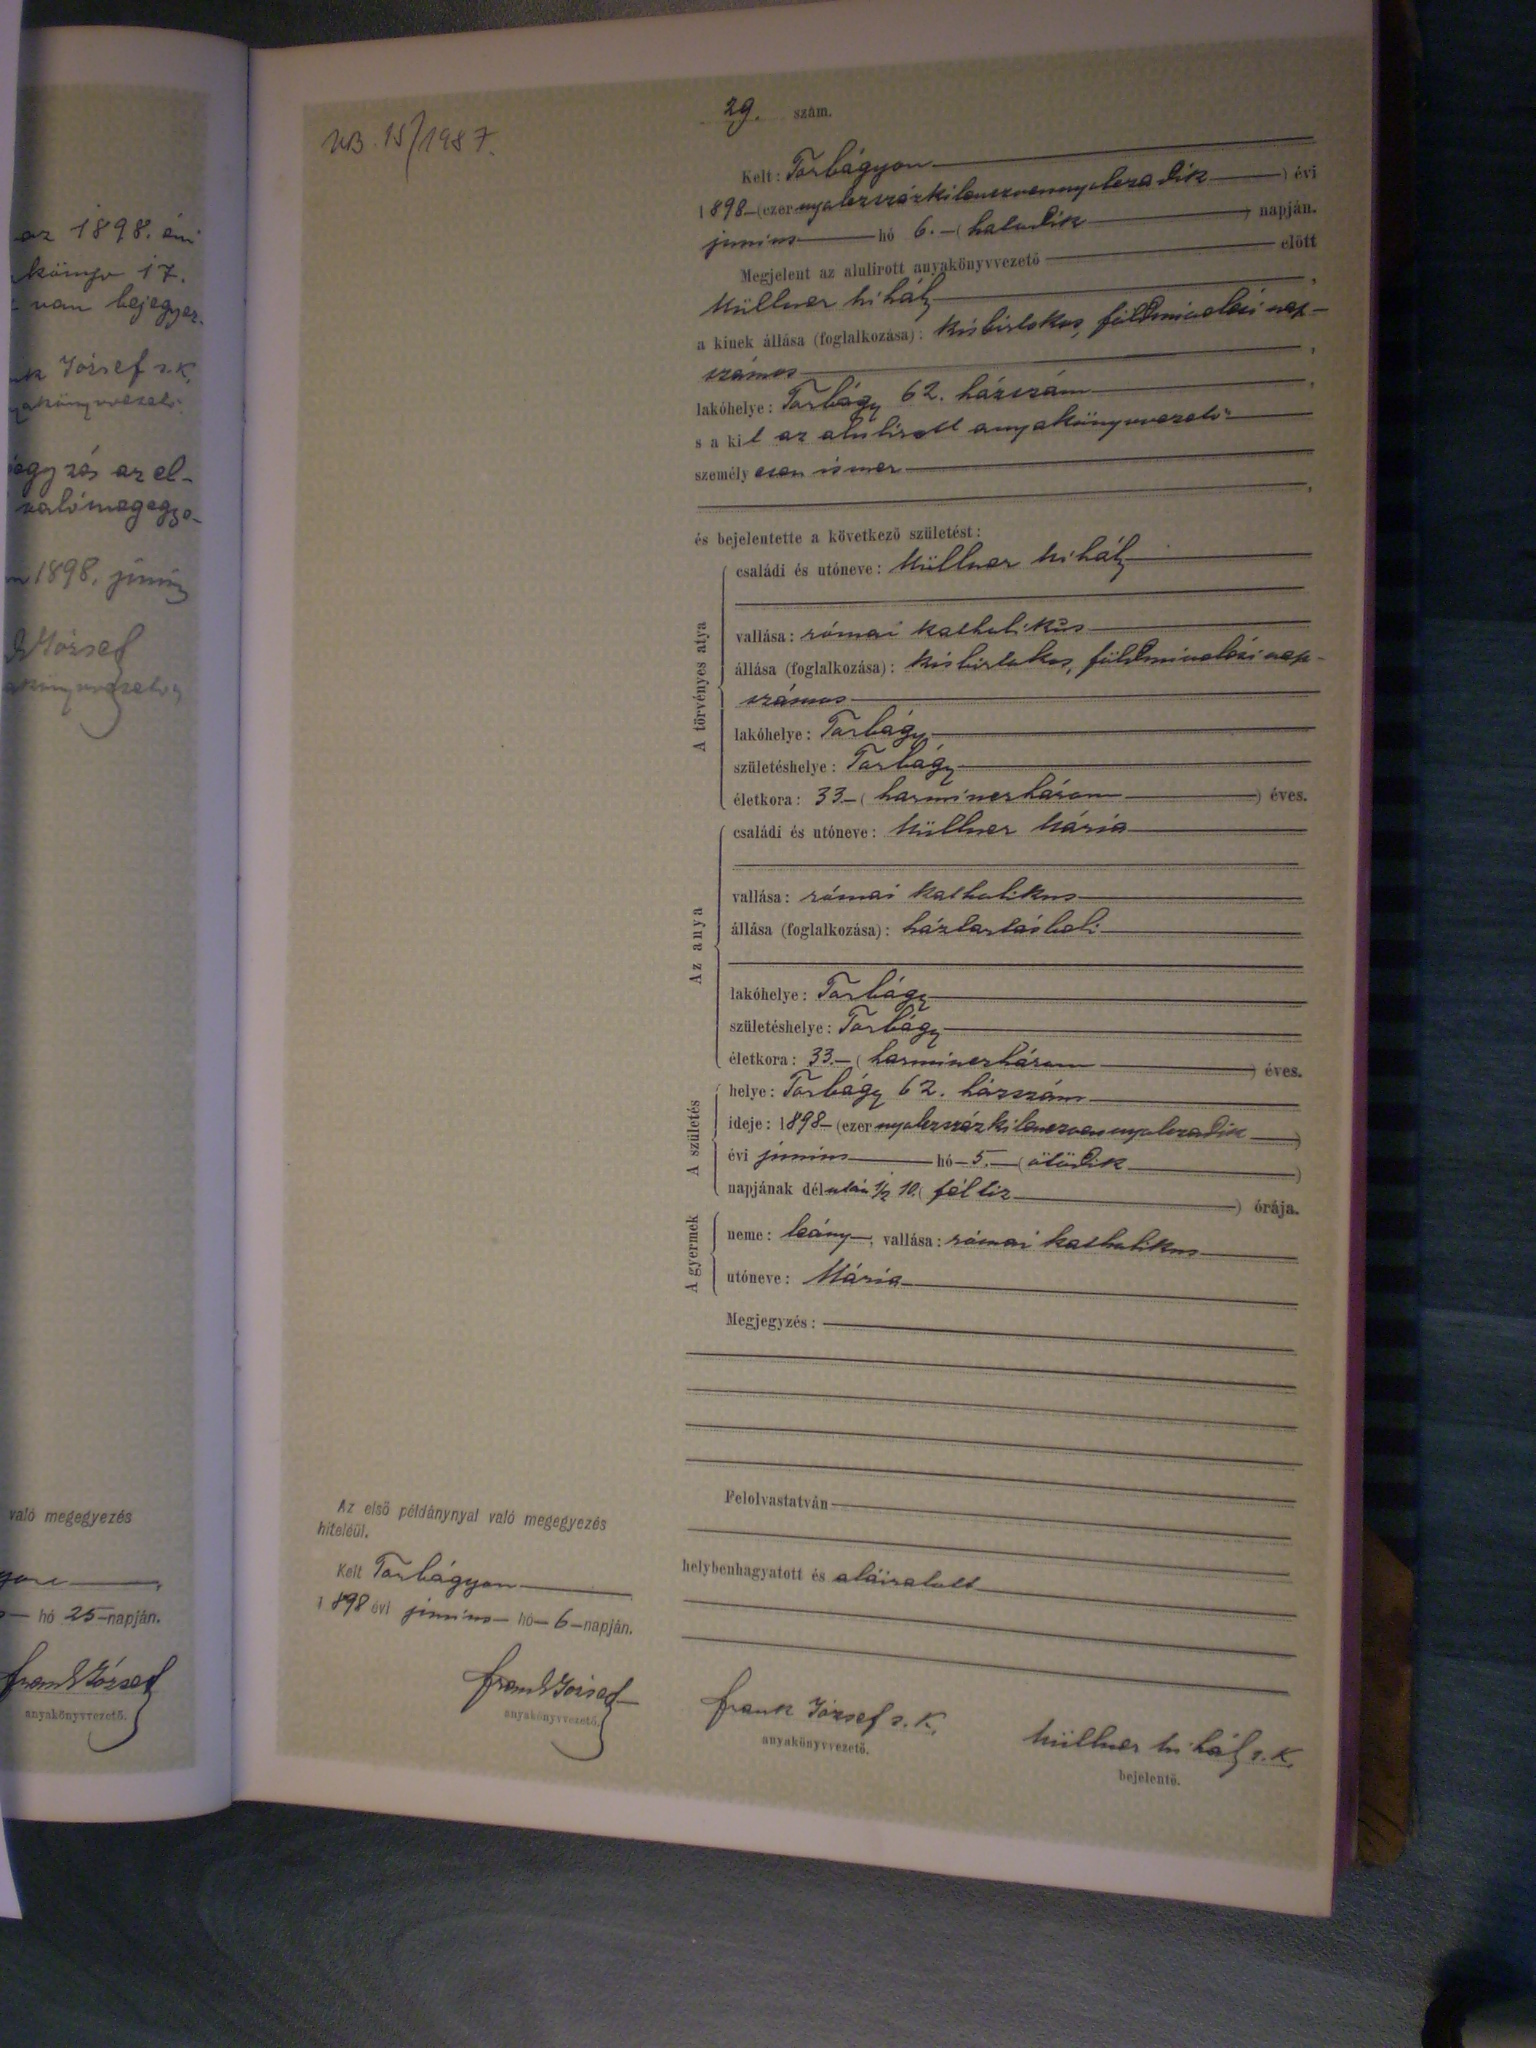 az 1898. évi
könyv 17.
van bejegyez-
József s.k.
egyzés az el-
való megegye-
1898. június
József
való megegyezés
hó 25 napján.
Frank József
anyakönyvvezető.
HB. 15/1987.
Az első példánynyal való megegyezés
hiteléül.
Kelt Torbágyon
1898 évi június hó 6 napján.
Frank József
anyakönyvvezető.
29. szám.
Kelt: Torbágyon
1898 (ezer nyolczszázkilenczvennyolczadik) évi
június hó 6. (hatodik) napján.
Megjelent az alulirott anyakönyvvezető előtt
Müllner Mihály,
a kinek állása (foglalkozása): kisbirtokos, földmivelési nap-
számos,
lakóhelye: Torbágy 62. házszám,
s a kit az alulirott anyakönyvvezető
személyesen ismer,
és bejelentette a következő születést:
A törvényes atya
családi és utóneve: Müllner Mihály
vallása: római katholikus
állása (foglalkozása): kisbirtokos, földmivelési nap-
számos
lakóhelye: Torbágy
születéshelye: Torbágy
életkora: 33 (harminczhárom) éves.
Az anya
családi és utóneve: Müllner Mária
vallása: római katholikus
állása (foglalkozása): háztartásbeli
lakóhelye: Torbágy
születéshelye: Torbágy
életkora: 33. (harminczhárom) éves.
A születés
helye: Torbágy 62. házszám
ideje: 1898 (ezer nyolczszázkilenczvennyolczadik)
évi június hó 5. (ötödik)
napjának délután 1/2 10. (féltiz) órája.
A gyermek
neme: leány, vallása: római katholikus
utóneve: Mária
Megjegyzés:
Felolvastatván
helybenhagyatott és aláiratott
Frank József s. k.
anyakönyvvezető.
Müllner Mihály s. k.
bejelentő.